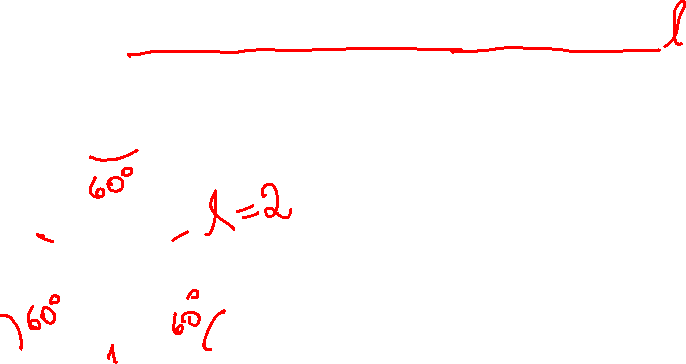 l
60°
λ=2
60° 60°